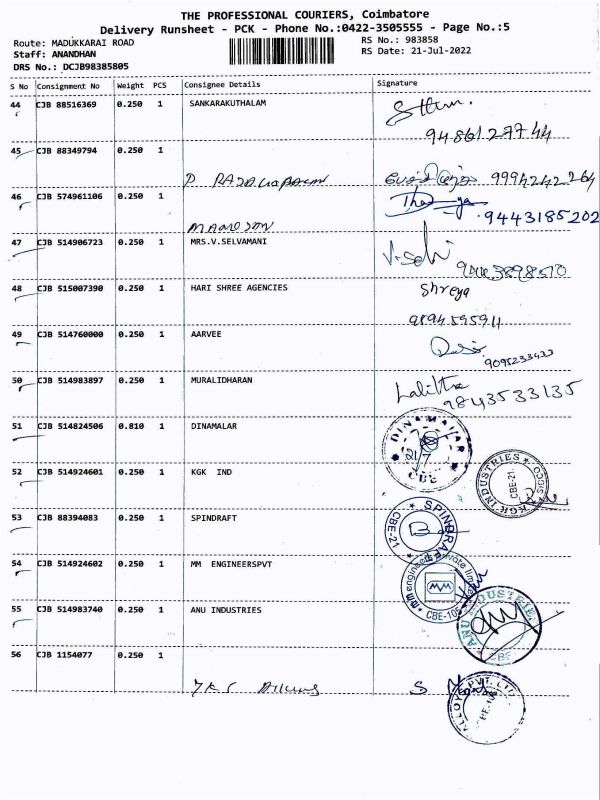 THE PROFESSIONAL COURIERS, Coimbatore
Delivery Runsheet - PCK - Phone No.:0422-3505555 - Page No.:5
Route: MADUKKARAI ROAD
RS No.: 983858
Staff: ANANDHAN
RS Date: 21-Jul-2022
DRS No.: DCJB98385805
S No Consignment No Weight PCS Consignee Details Signature
44 CJB 88516369 0.250 1 SANKARAKUTHALAM
9486127744
45 CJB 88349794 0.250 1
9994242264
46 CJB 574961106 0.250 1
9443185202
47 CJB 514906723 0.250 1 MRS.V.SELVAMANI
48 CJB 515007390 0.250 1 HARI SHREE AGENCIES Shreya
9894595911
49 CJB 514760000 0.250 1 AARVEE
9095233433
50 CJB 514983897 0.250 1 MURALIDHARAN Lalitha
9843533135
51 CJB 514824506 0.810 1 DINAMALAR
DINAMALAR
21/7
CBE
52 CJB 514924601 0.250 1 KGK IND
KGK INDUSTRIES
CBE-21
53 CJB 88394083 0.250 1 SPINDRAFT
SPINDRAFT
CBE-21
54 CJB 514924602 0.250 1 MM ENGINEERSPVT
mm engineers private limited
CBE-105
55 CJB 514983740 0.250 1 ANU INDUSTRIES
ANU INDUSTRIES
CBE
56 CJB 1154077 0.250 1
S